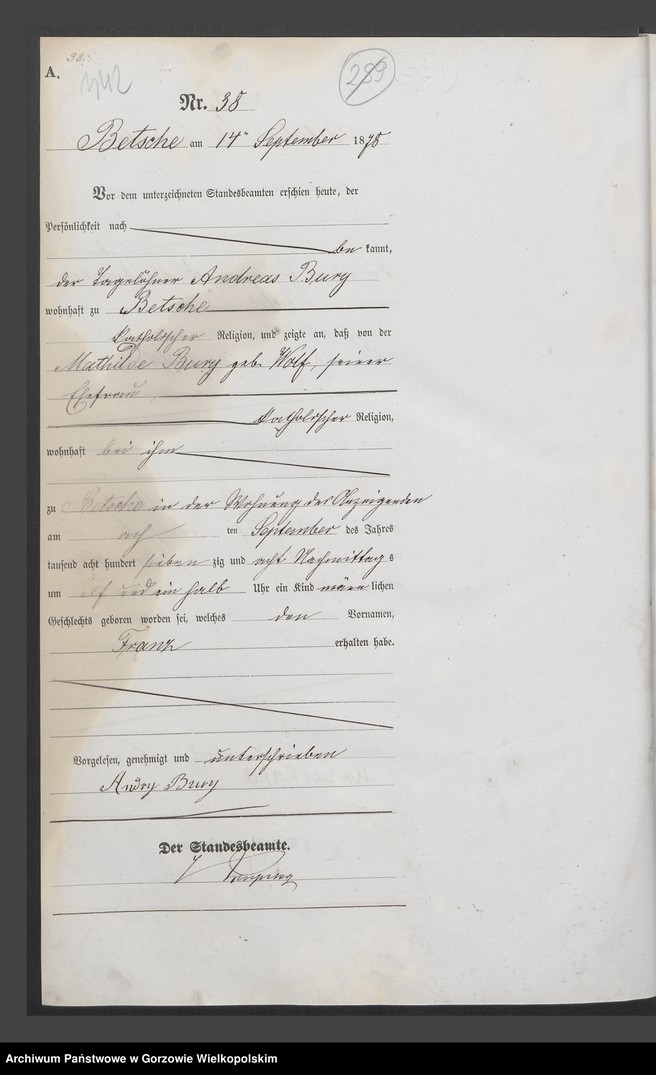 38.
A.
289
Nr. 38
Betsche am 14ten September 1878
Vor dem unterzeichneten Standesbeamten erschien heute, der
Persönlichkeit nach
be kannt,
der Tagelöhner Andreas Bury
wohnhaft zu Betsche
katholischer Religion, und zeigte an, daß von der
Mathilde Bury geb. Wolf, seiner
Ehefrau
katholischer Religion,
wohnhaft bei ihm
zu Betsche in der Wohnung des Anzeigenden
am ach ten September des Jahres
tausend acht hundert sieben zig und acht Nachmittag s
um elf und ein halb Uhr ein Kind männ lichen
Geschlechts geboren worden sei, welches den Vornamen,
Franz erhalten habe.
Vorgelesen, genehmigt und unterschrieben
Andry Bury
Der Standesbeamte.
Archiwum Państwowe w Gorzowie Wielkopolskim